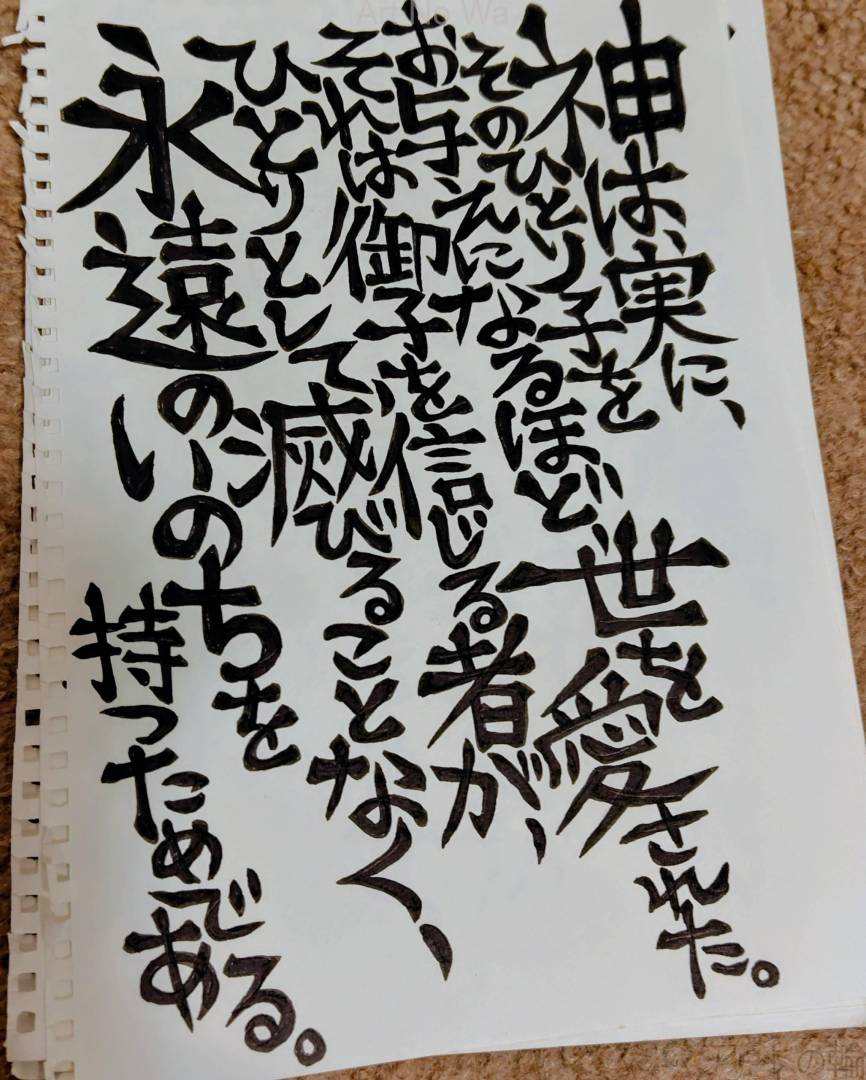 Art No Wa
神は実に、
そのひとり子を
お与えになるほど、
世を愛された。
それは御子を信じる者が、
ひとりとして滅びることなく、
永遠のいのちを
持つためである。
アートの輪